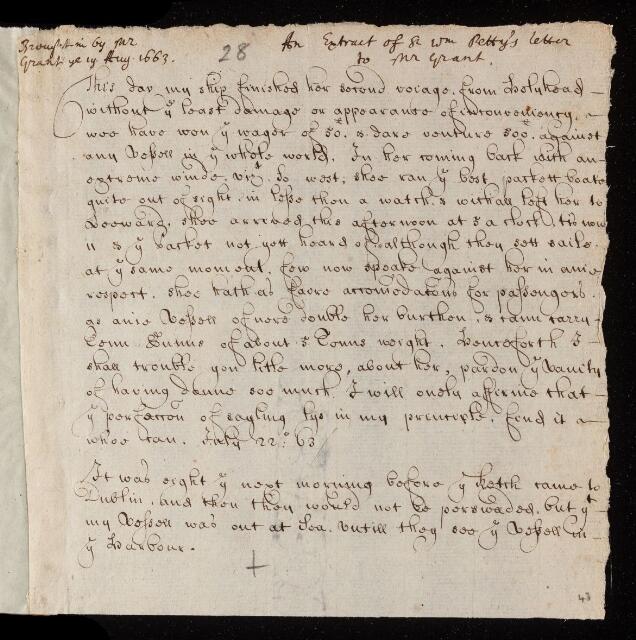 Brought in by Mr
Grant ye 19 Aug. 1663.
28
An Extract of Sr Wm Petty's letter
to Mr Grant.
This day my ship finished her second voiage from Holyhead
without ye least damage or appearance of inconveniency,
wee have won ye wager of 50, & dare venture 500, against
any Vessell in ye whole world. In her coming back with an
extreme winde, vizt So west, shee ran ye best packett boate
quite out of sight in lesse then a watch, & withall left her to
Leeward, shee arrived this afternoon at 5 a clock, tis now
11 & ye Packet not yett heard of, although they sett saile
at ye same moment, few now speake against her in anie
respect, shee hath as faire accomodatons for passengers
as anie Vessell of neere double her burthen, & cann carry
Tenn Gunns of about 5 Tonns weight. Henceforth I
shall trouble you little more, about her, pardon ye Vanity
of having donne soe much, I will onely affirme that
ye perfeccon of sayling lyes in my principle, find it
whoe can. July 22: 63
It was eight ye next morning before ye Ketch came to
Dublin, and then they would not be perswaded, but yt
my Vessell was out at Sea, untill they see ye Vessell in
ye Harbour.
43